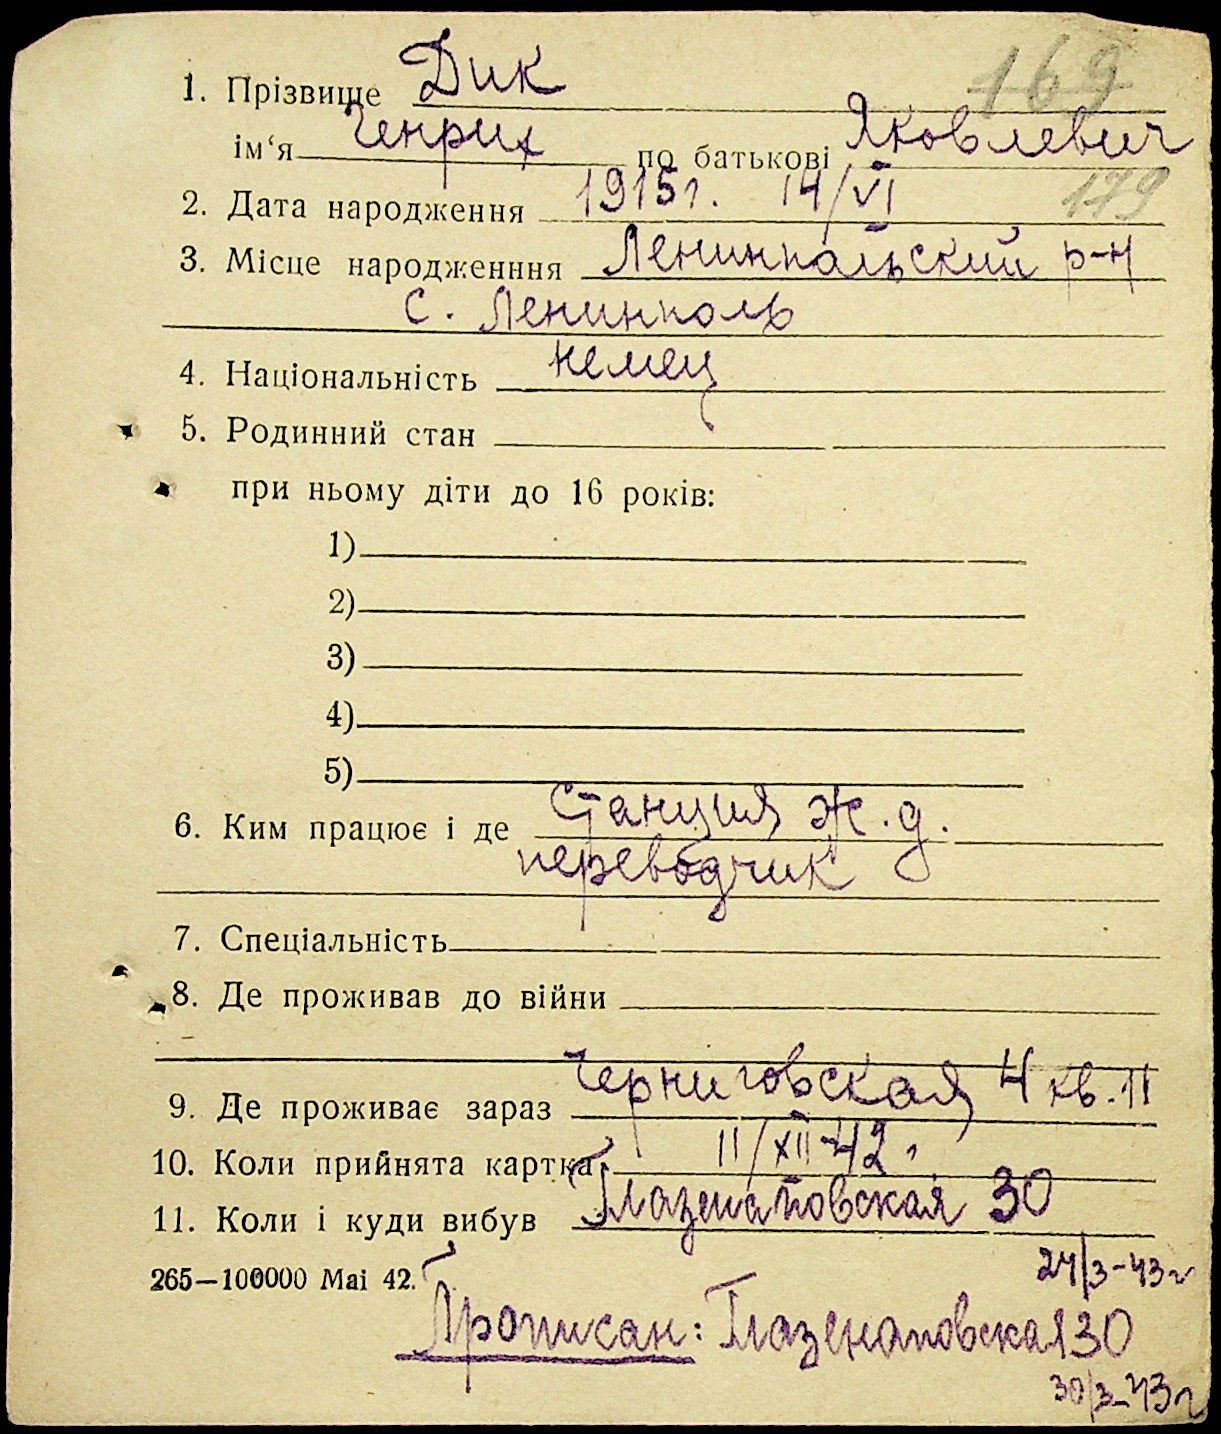 169
1. Прізвище Дик
ім‘я Генрих по батькові Яковлевич
179
2. Дата народження 1915 г. 14/VI
3. Місце народженння Ленинпольский р-н
с. Ленинполь
4. Національність немец
5. Родинний стан
при ньому діти до 16 років:
1)
2)
3)
4)
5)
6. Ким працює і де станция ж.д.
переводчик
7. Спеціальність
8. Де проживав до війни
9. Де проживає зараз Черниговская 4 кв. 11
10. Коли прийнята картка 11/XII-42 г
11. Коли і куди вибув Глазенаповская 30
24/3-43 г
265—100000 Mai 42.
Прописан: Глазенаповская 30
30/3-43 г